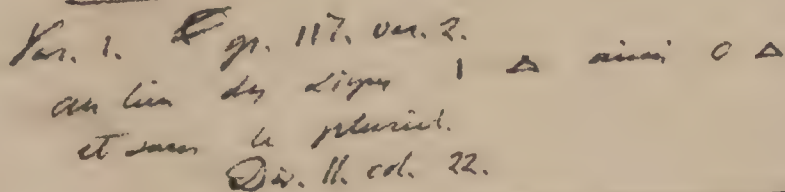 Var. 1. gr. 117. var. 2.
au lieu des signes | Δ ainsi 0 Δ
et sans le pluriel.
Div. II. col. 22.